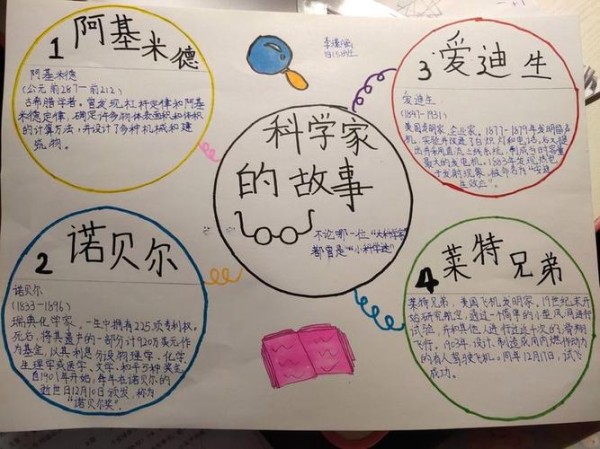 科学家
的故事
不论哪一位“大科学家”
都曾是“小科学迷”
1 阿基米德
阿基米德
(公元前287—前212)
古希腊学者。曾发现杠杆定律和阿基
米德定律，确定许多物体表面积和体积
的计算方法，并设计了多种机械和建
筑物。
2 诺贝尔
诺贝尔
(1833-1896)
瑞典化学家，一生中拥有225项专利权。
死后，将其遗产的一部分计920万美元作
为基金，以其利息分设物理学、化学、
生理学或医学、文学、和平5种奖金，
自1901年开始，每年在诺贝尔的
逝世日12月10日颁发，称为
“诺贝尔奖”。
3 爱迪生
爱迪生
(1847-1931)
美国发明家、企业家。1877—1879年发明留声
机，实验并改进了白炽灯和电话。后又提
出并采用直流三线系统，制成当时容量
最大的发电机。1883年发现热电
子发射现象，被称为“爱迪
生效应”。
4 莱特兄弟
莱特兄弟，美国飞机发明家，19世纪末开
始研究航空，通过一个简单的小型风洞进行
试验，并和其他人进行过近千次的滑翔
飞行。1903年，设计、制造成用内燃机动力
的有人驾驶飞机。同年12月17日，试飞
成功。